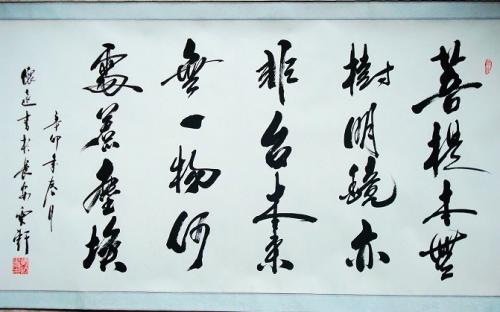 菩提本無
樹明鏡亦
非台本來
無一物何
處惹塵埃
辛卯年春月
書於長安軒